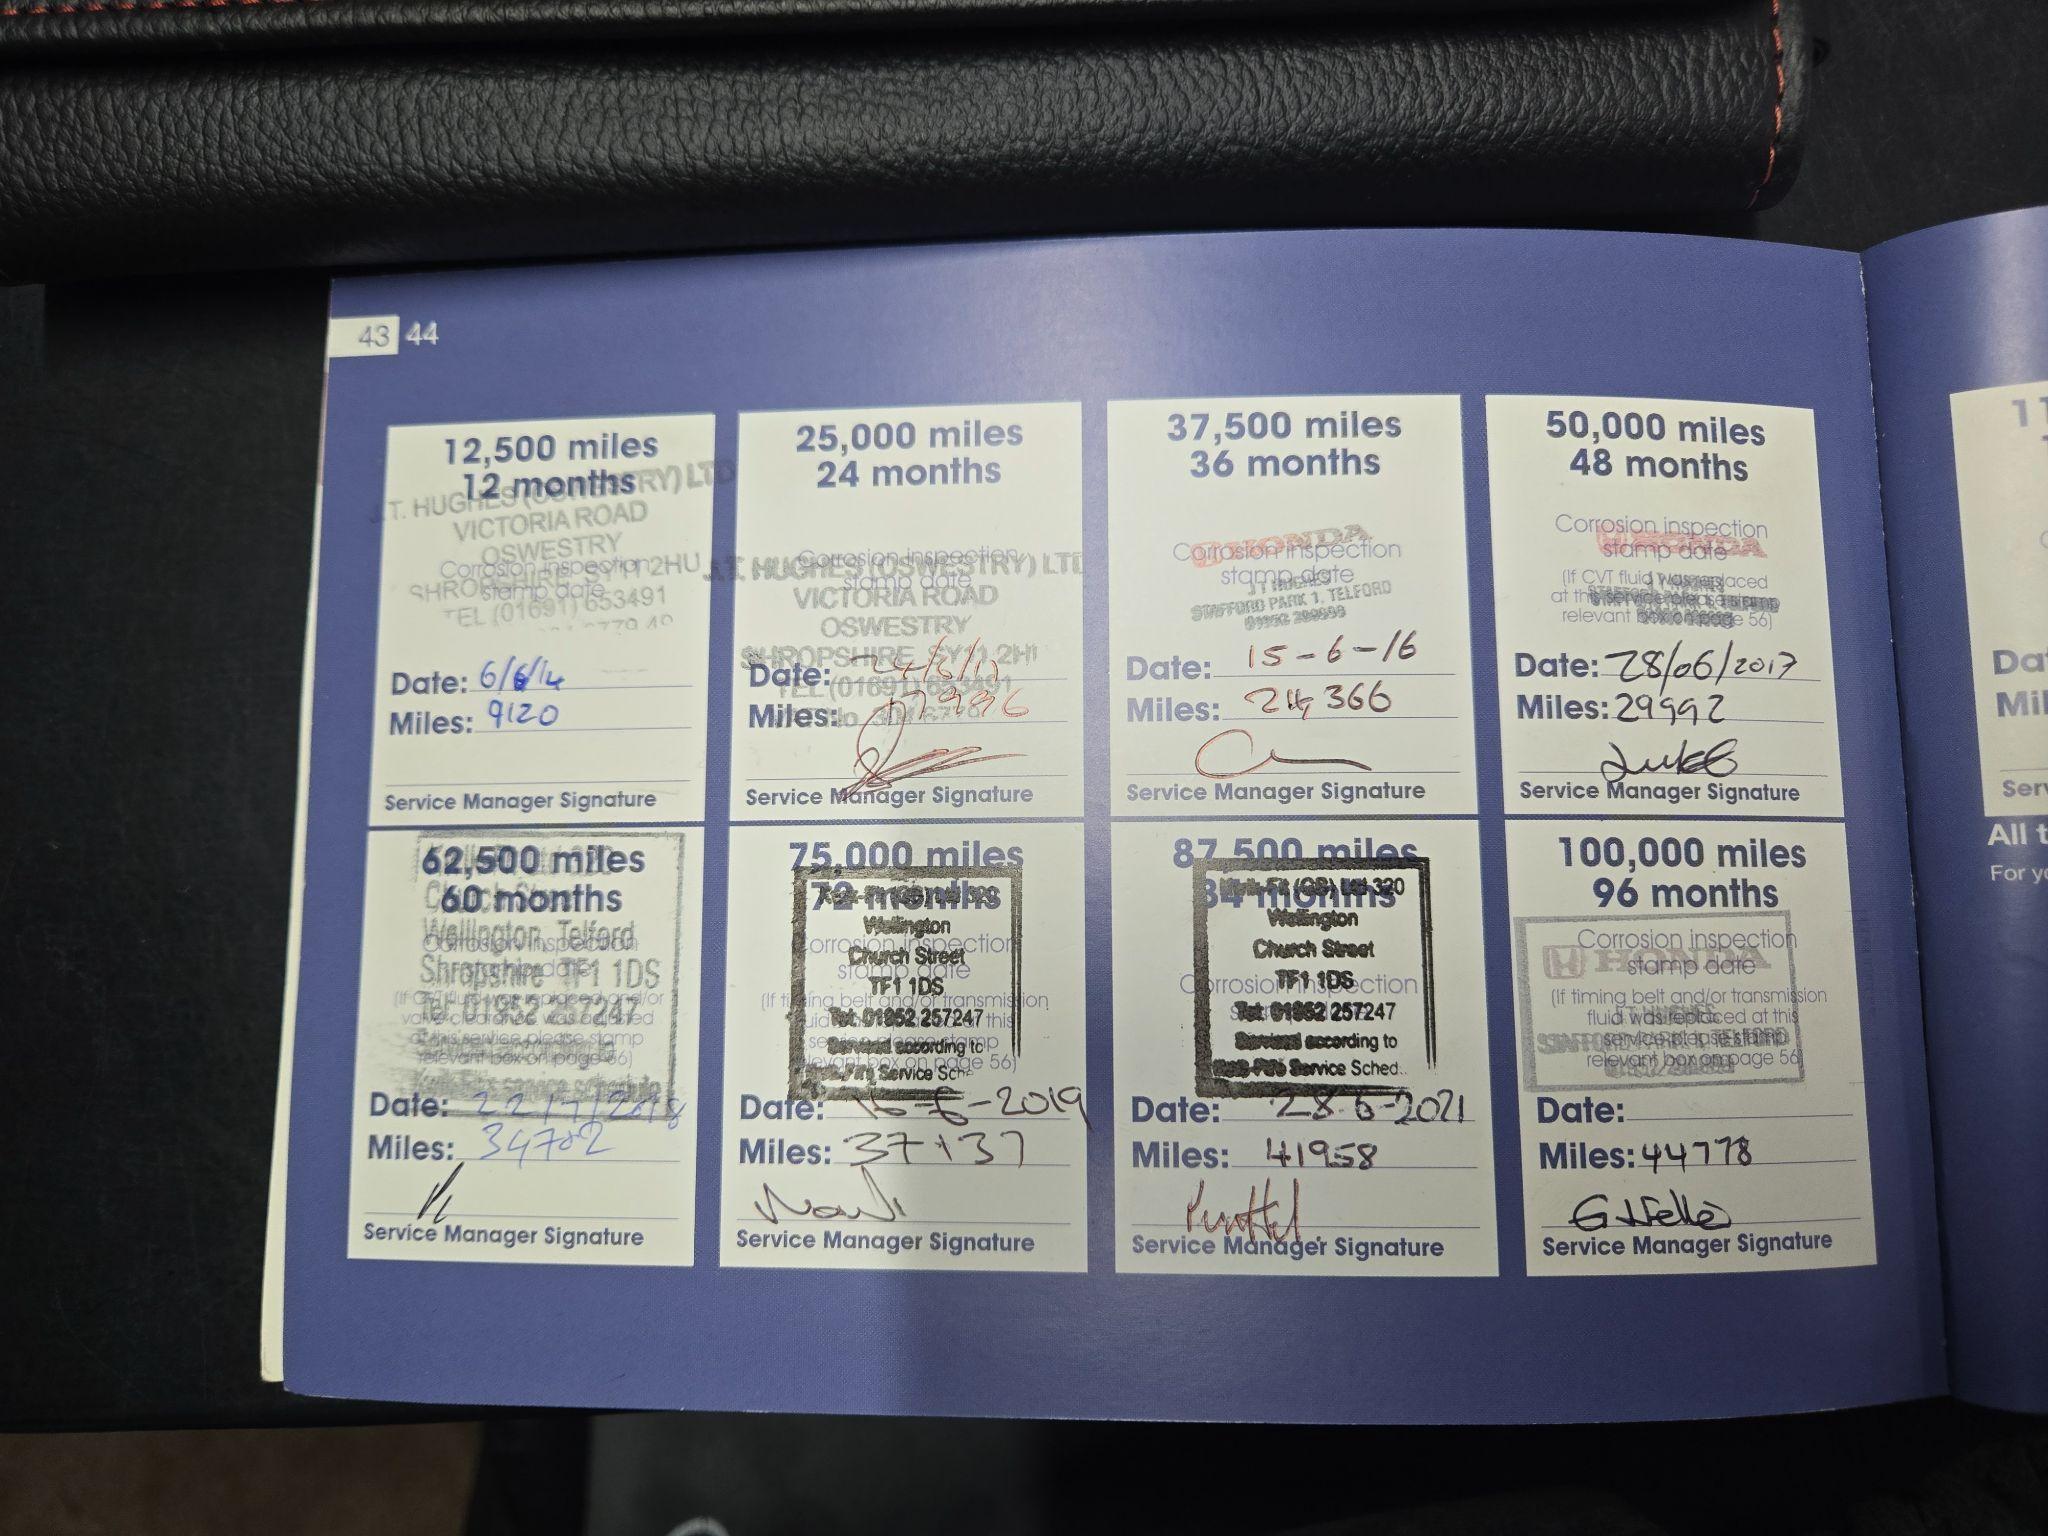 43 44
12,500 miles
12 months
J.T. HUGHES (OSWESTRY) LTD
VICTORIA ROAD
OSWESTRY
Corrosion inspection
stamp date
SHROPSHIRE SY11 2HU
TEL (01691) 653491
Date: 6/6/14
Miles: 9120
Service Manager Signature
25,000 miles
24 months
Corrosion inspection
stamp date
J.T. HUGHES (OSWESTRY) LTD
VICTORIA ROAD
OSWESTRY
SHROPSHIRE, SY11 2H
TEL (01691) 653491
Date:
Miles:
Service Manager Signature
37,500 miles
36 months
HONDA
Corrosion inspection
stamp date
J T HUGHES
STAFFORD PARK 1, TELFORD
Date: 15-6-16
Miles: 24,366
Service Manager Signature
50,000 miles
48 months
Corrosion inspection
stamp date
HONDA
(If CVT fluid was replaced
at this service please stamp
relevant box on page 56)
Date: 28/06/2017
Miles: 29992
Service Manager Signature
62,500 miles
60 months
Church Street
Wellington Telford
Corrosion inspection
stamp date
Shropshire TF1 1DS
(If CVT fluid was replaced and/or
valve clearance was adjusted
at this service please stamp
relevant box on page 56)
Tel 01952 257247
Kwik-Fit service schedule
Date: 22/7/2018
Miles: 34702
Service Manager Signature
75,000 miles
72 months
Wellington
Church Street
TF1 1DS
Tel: 01952 257247
Serviced according to
Kwik-Fit Service Sche
Corrosion inspection
stamp date
(If timing belt and/or transmission
fluid was replaced at this
service please stamp
relevant box on page 56)
Date: 6-2019
Miles: 37137
Service Manager Signature
87,500 miles
84 months
Kwik-Fit (GB) Ltd 320
Wellington
Church Street
TF1 1DS
Tel: 01952 257247
Serviced according to
Kwik-Fit Service Sched
Corrosion inspection
Date: 28-6-2021
Miles: 41958
Service Manager Signature
100,000 miles
96 months
Corrosion inspection
stamp date
HONDA
(If timing belt and/or transmission
fluid was replaced at this
service please stamp
relevant box on page 56)
Date:
Miles: 44778
Service Manager Signature
All t
For yo